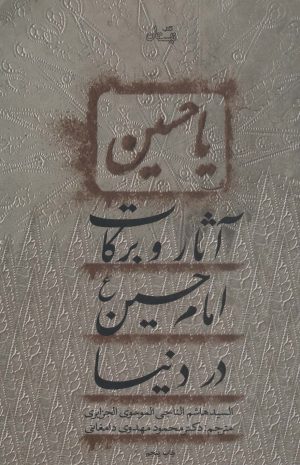 کتاب نیستان
یا حسین
آثار و برکات
امام حسین ع
در دنیا
السید هاشم الناجی الموسوی الجزایری
مترجم: دکتر محمود مهدوی دامغانی
چاپ پنجم